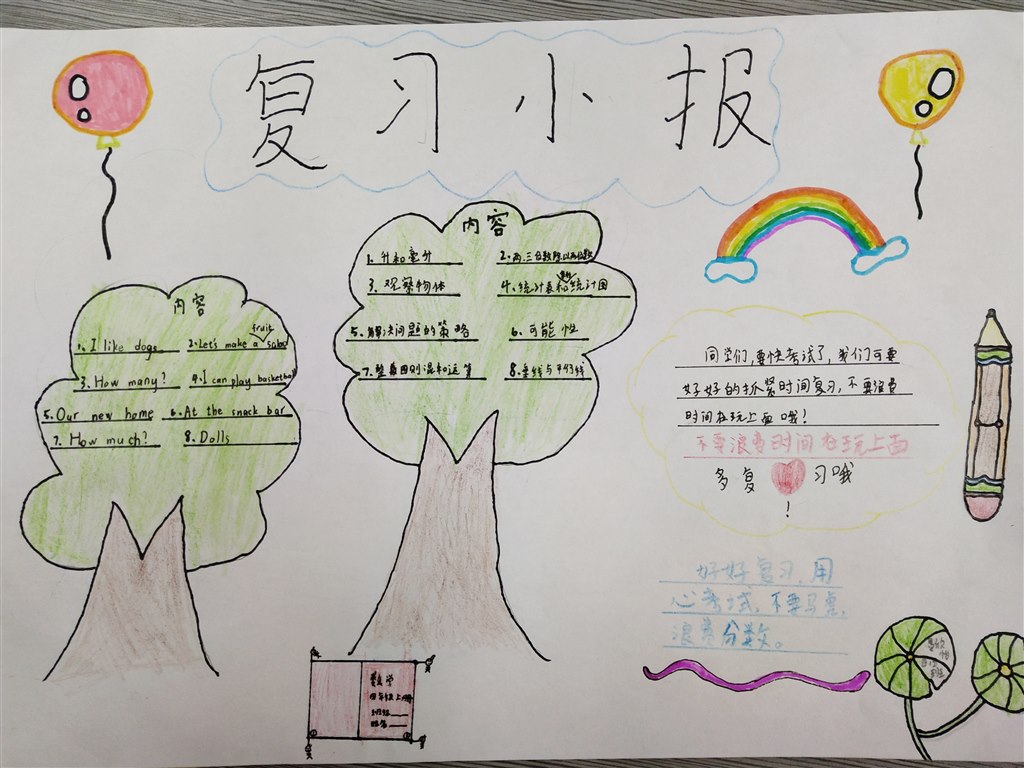 复习小报
内容
1. I like dogs 2. Let's make a fruit salad
3. How many? 4. I can play basketball
5. Our new home 6. At the snack bar
7. How much? 8. Dolls
内容
1. 升和毫升 2. 两、三位数除以两位数
3. 观察物体 4. 统计表和条形统计图
5. 解决问题的策略 6. 可能性
7. 整数四则混和运算 8. 垂线与平行线
同学们,要快考试了,我们可要
好好的抓紧时间复习,不要浪费
时间在玩上面哦!
不要浪费时间在玩上面
多复习哦
!
好好复习,用
心考试,不要马虎,
浪费分数。
数学
四年级上册
班级
姓名